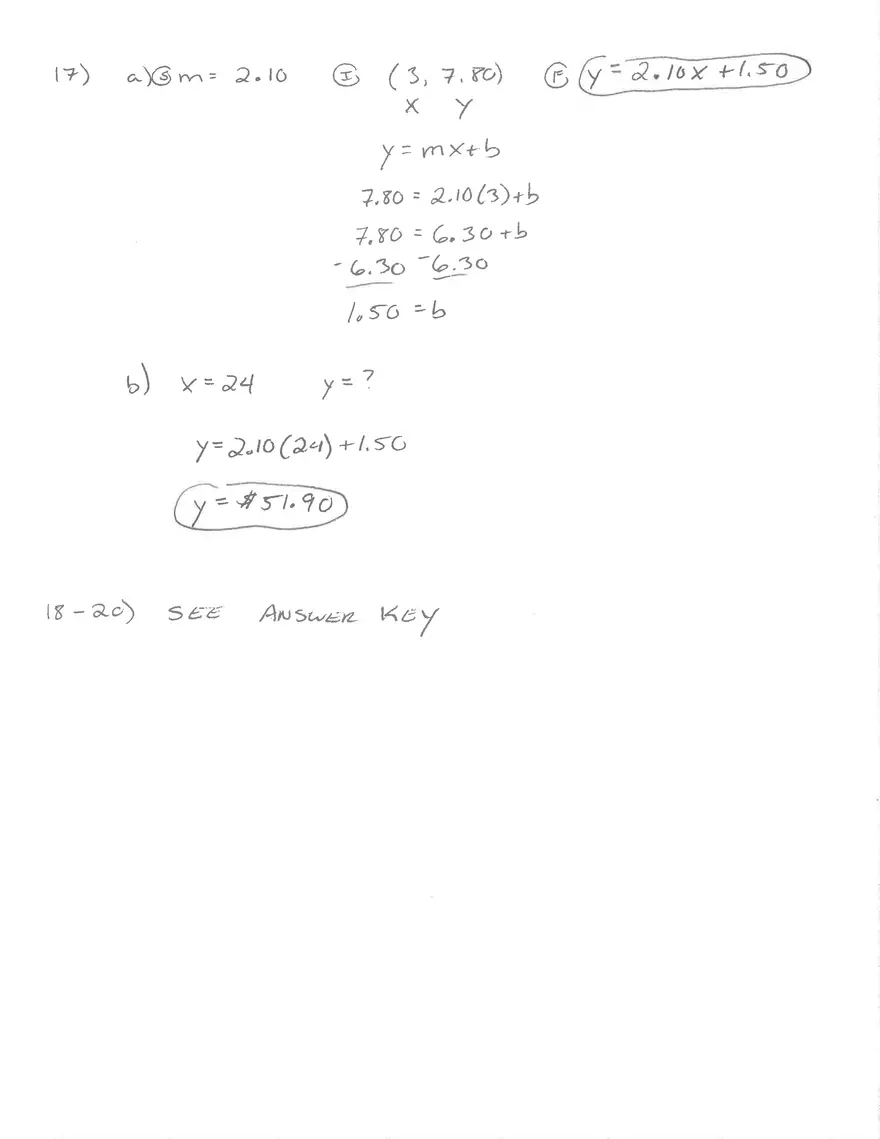 17) a) Ⓢ m = 2.10 Ⓘ (3, 7.80) Ⓕ y = 2.10x + 1.50
x y
y = mx + b
7.80 = 2.10(3) + b
7.80 = 6.30 + b
-6.30 -6.30
1.50 = b
b) x = 24 y = ?
y = 2.10(24) + 1.50
y = $51.90
18-20) SEE ANSWER KEY